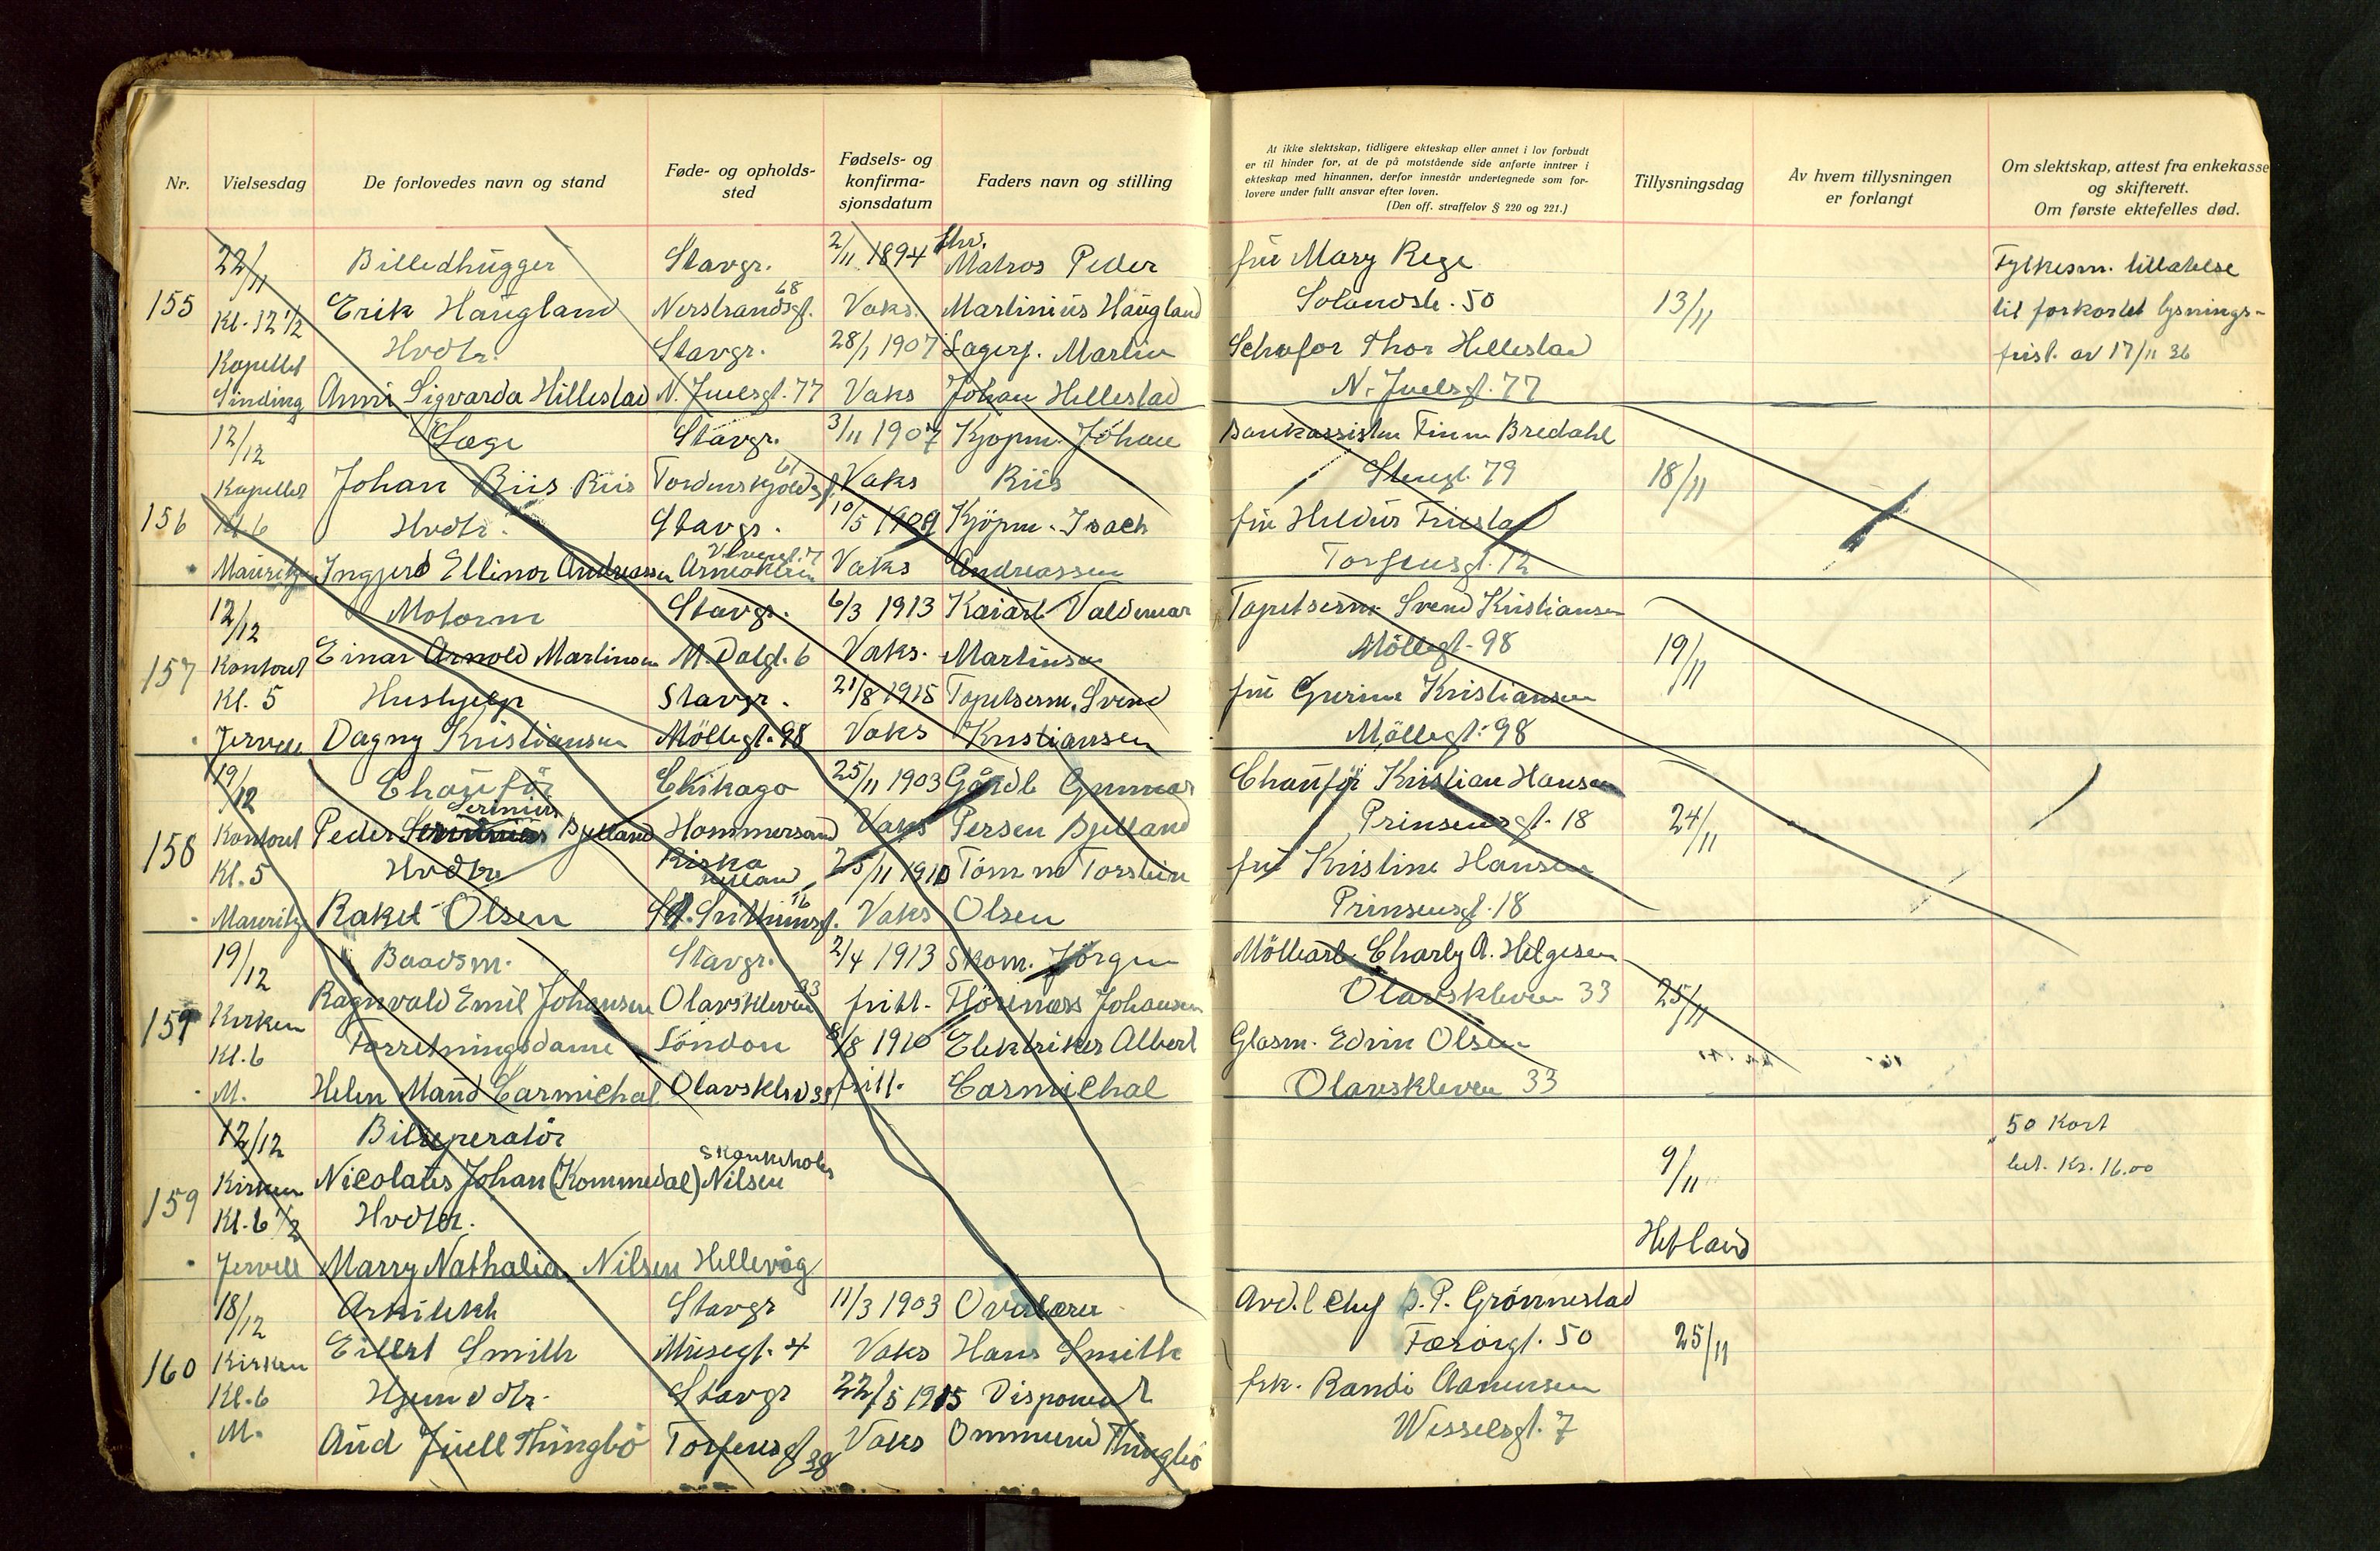 Nr.
Vielsesdag
De forlovedes navn og stand
Føde- og opholds-
sted
Fødsels- og
konfirma-
sjonsdatum
Faders navn og stilling
At ikke slektskap, tidligere ekteskap eller annet i lov forbudt
er til hinder for, at de på motstående side anførte inntrer i
ekteskap med hinannen, derfor innestår undertegnede som for-
lovere under fullt ansvar efter loven.
(Den off. straffelov § 220 og 221.)
Tillysningsdag
Av hvem tillysningen
er forlangt
Om slektskap, attest fra enkekasse
og skifterett.
Om første ektefelles død.
22/11 Billedhugger Stavgr. 2/11 1894 Matros Peder fru Mary Rege Fylkesm. tillatelse
68
155 Kl. 12 1/2 Erik Haugland Nerstrandsgt. Vaks. Martinius Haugland Solandsb. 50 13/11 til forkortet lysnings-
Kapellet Hvdtr. Stavgr. 28/1 1907 Lagerf. Martin Thor Hellestad frist. av 17/11 36
Sinding Anni Sigvarda Hillestad N. Juelsgt. 77 Vaks Johan Hellestad N. Juelsgt. 77
12/12 Læge Stavgr. 3/11 1907 Kjøpm. Johan Bankassisten Finn Bredahl
61
Kapellet Johan Riis Riis Tordenskjoldsgt. Vaks Riis Stengt. 79 18/11
156 Kl. 6 Hvdtr. Stavgr. 10/5 1909 Kjöpm. Isach fru Heldur Friestad
Mauritz Ingjerd Ellinor Andreassen Vaks Andreassen Torfeusgt. 12
12/12 Motorm Stavgr. 6/3 1913 Kaiarb Valdemar Tapetserm. Svend Kristiansen
157 Kontoret Einar Arnold Martinsen M. Dalgt. 6 Vaks. Martinsen Möllegt. 98 19/11
Kl. 5 Hushjelp Stavgr. 21/8 1915 Tapetserm. Svend fru Gurine Kristiansen
Jervell Dagny Kristiansen Möllegt. 98 Vaks Kristiansen Möllegt. 98
19/12 Chauffør Chikago 25/11 1903 Gårdb Gunnar Chauffør Kristian Hansen
Serinius
158 Kontoret Peder Bjelland Hommersand Vaks Persen Bjelland Prinsensgt. 18 24/11
Kl. 5 Hvdtr Riska 25/11 1910 Tömm Torstein fru Kristine Hansen
16
Mauritz Rakel Olsen Vaks Olsen Prinsensgt. 18
19/12 Baadsm. Stavgr. 2/4 1913 Skom. Jörgen Möllearb. Charly A. Helgesen
33
159 Kirken Ragnvald Emil Johansen Olavskleven fritt. Johansen Olavskleven 33 25/11
Kl. 6 Forretningsdame London 8/8 1910 Elektriker Albert Glasm. Edvin Olsen
M. Helen Maud Carmichal Olavsklev 33 fritt. Carmichal Olavskleven 33
12/12 Bilreperatör 50 Kort
9/11 bet. Kr. 16.00
159 Kirken Nicolaus Johan (Kommedal) Nilsen
Kl. 6 1/2 Hvdtr. Hetland
Jervell Marry Nathalia Nilsen Hellevåg
18/12 Arkitekt Stavgr 11/3 1903 Overlærer Avd. chef P. Grönnestad
160 Kirken Eilert Smith Musegt. 4 Vaks Hans Smith Færöigt. 50 25/11
Kl. 6 Hjemvdtr. Stavgr 22/5 1915 Disponent frk. Randi Aanensen
M. Aud Juell Thingbö Torfeusgt 38 Vaks Ommund Thingbö Wesselsgt. 7